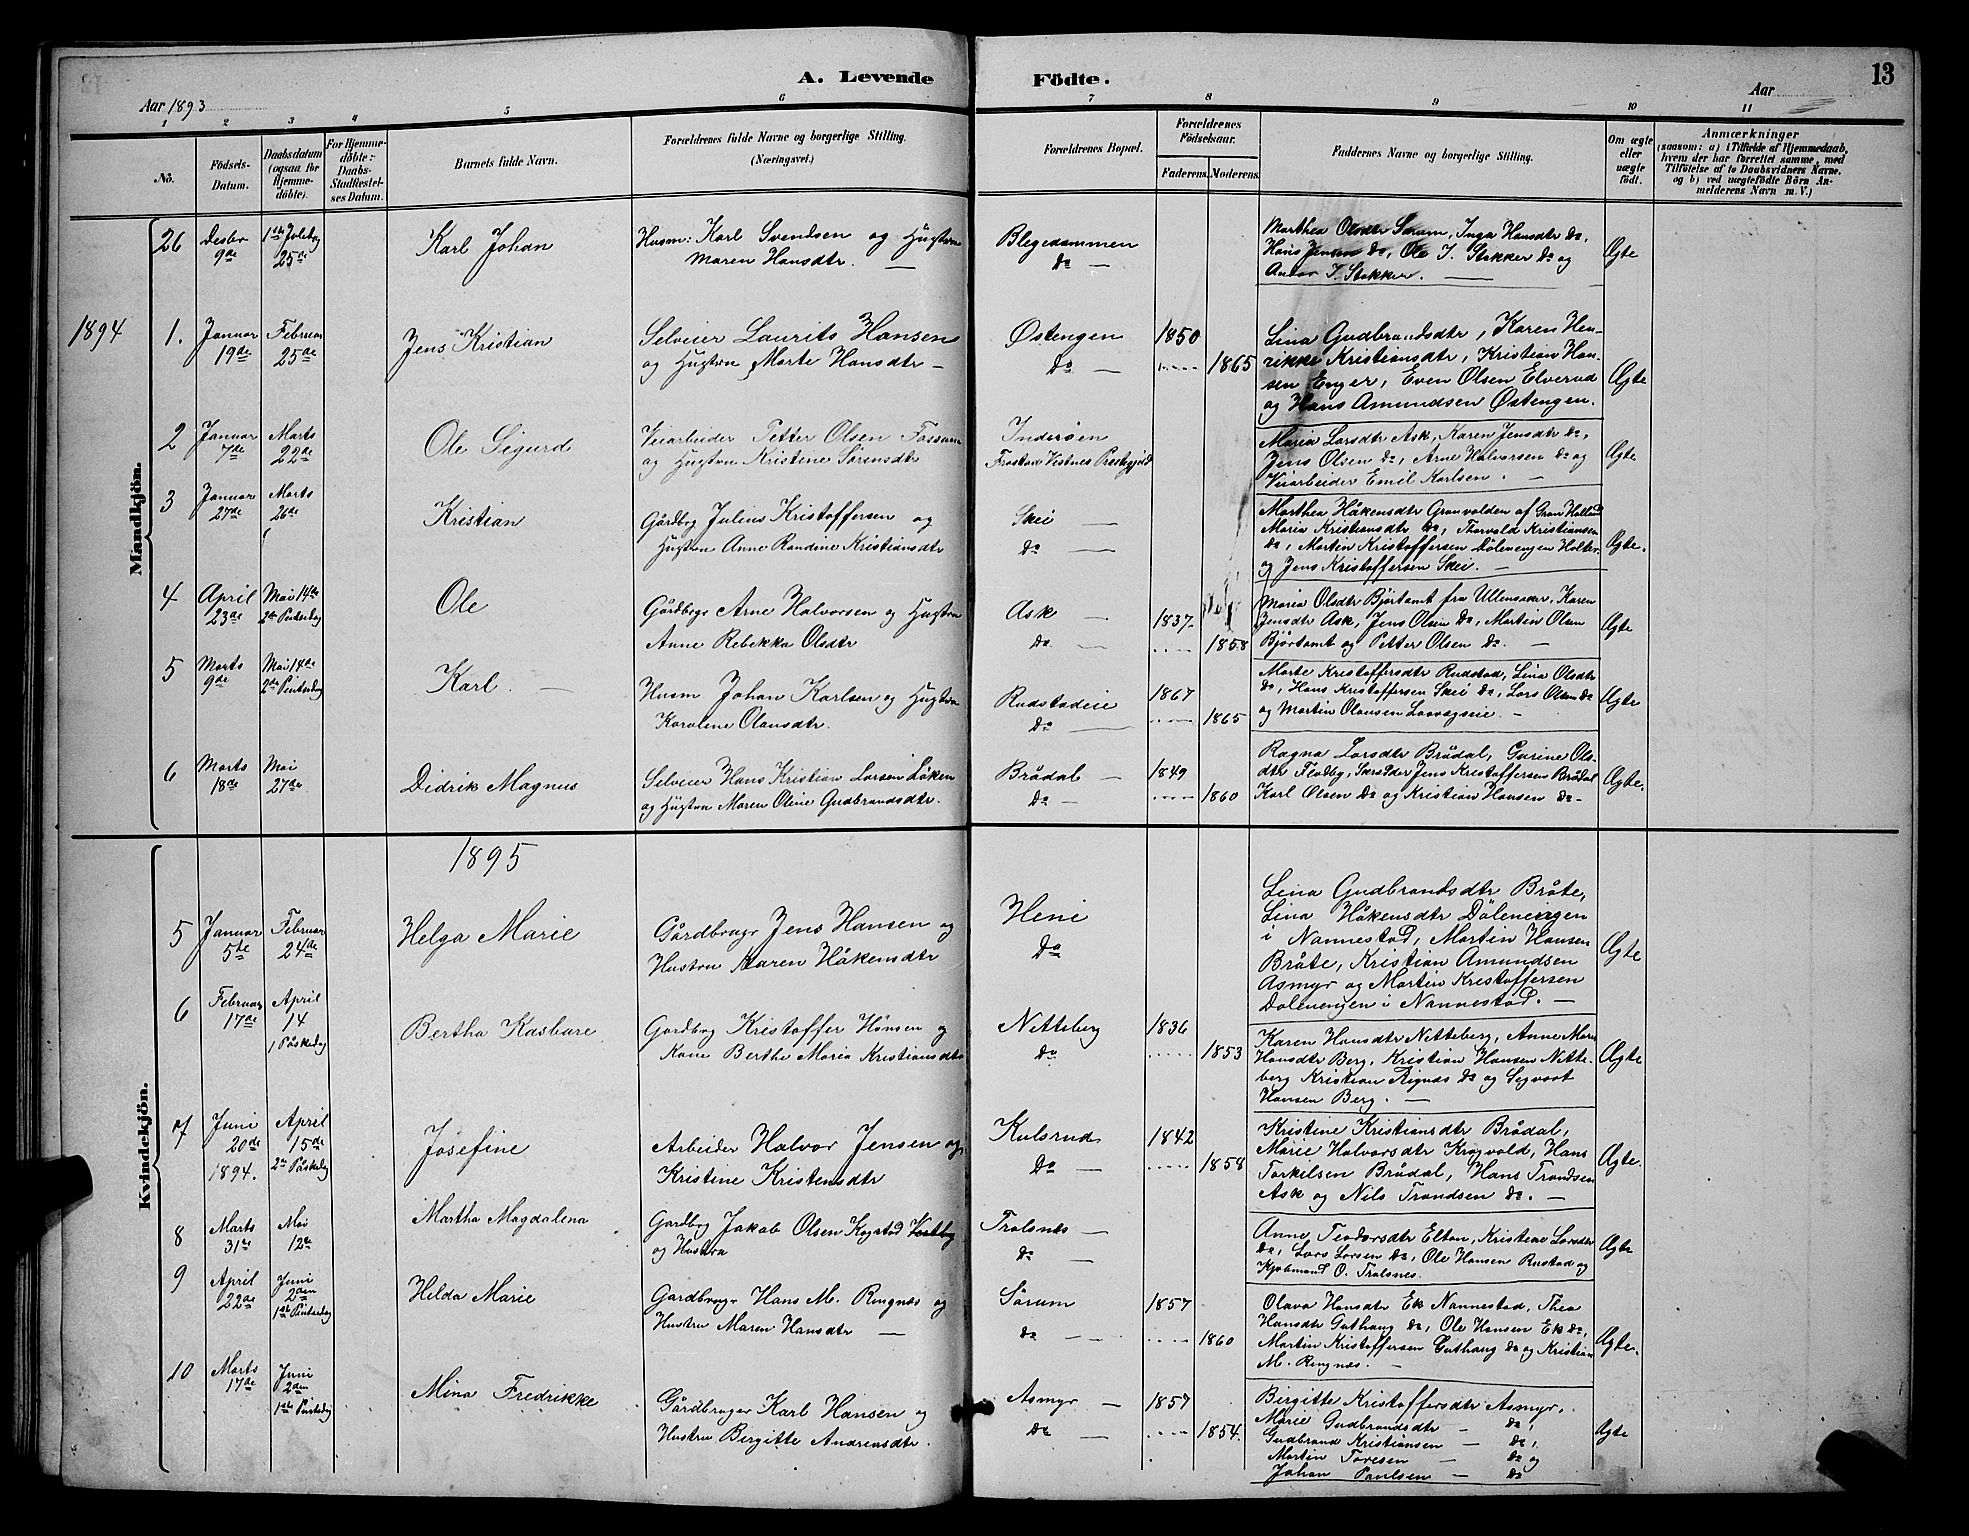 A. Levende Födte.
13
Aar 1893
Aar
1 2 3 4 5 6 7 8 9 10 11
No.
Födsels-
Datum.
Daabsdatum
(ogsaa for
Hjemme-
döbte).
For Hjemme-
döbte:
Daabs-
Stadfæstel-
ses Datum.
Barnets fulde Navn.
Forældrenes fulde Navne og borgerlige Stilling.
(Næringsvei.)
Forældrenes Bopæl.
Forældrenes
Födselsaar.
Faderens.
Moderens.
Faddernes Navne og borgerlige Stilling.
Om ægte
eller
uægte
födt.
Anmærkninger
(saasom: a) i Tilfælde af Hjemmedaab,
hvem der har forrettet samme, med
Tilföielse af to Daabsvidners Navne.
og b) ved uægtefödte Börn An-
melderens Navn m. V.)
Mandkjön.
26
Desbr
9de
1ste Juledag
25de
Karl Johan
Husm: Karl Svendsen og Hustru
Maren Hansdtr. —
Blegedammen
Do —
Marthea Olsdtr Sørum, Inga Hansdtr Do,
Hans Jensen Do, Ole J. Stokker Do og
Anton J. Stokker. —
Ægte
1894
1.
Januar
19de
Februar
25de
Jens Kristian
Selveier Laurits Hansen
og Hustru Marte Hansdtr —
Østengen
Do —
1850
1865
Lina Gudbrandsdtr, Karen Hen-
rikke Kristiansdtr, Kristian Han-
sen Enger, Even Olsen Elverud
og Hans Amundsen Østengen.
Ægte
2
Januar
7de
Marts
22de
Ole Sigurd
Veiarbeider Petter Olsen Fossum
og Hustru Kristine Sørensdtr
Inderøen
Frostad Vestnes Prestegjeld
Maria Larsdtr Ask, Karen Jensdtr do,
Jens Olsen Do, Arne Halvorsen Do og
Veiarbeider Emil Karlsen. —
Ægte
3
Januar
27de
Marts
26de
Kristian
Gårdbrg Julius Kristoffersen og
Hustru Anne Randine Kristiansdtr
Skei —
Do —
Marthea Håkensdtr Granvolden af Gran Hadl
Maria Kristiansdtr Do, Thorvald Kristiansen
Do, Morten Kristoffersen Dølenengen Holter
og Jens Kristoffersen Skei. —
Ægte.
4
April
23de
Mai 14de
2den Pintsedag
Ole
Gårdbrgr Arne Halvorsen og Hustru
Anne Rebekka Olsdtr
Ask —
Do —
1837
1858
Maria Olsdtr Bjørtomt fra Ullensaker, Karen
Jensdtr Ask, Jens Olsen Do, Martin Olsen
Bjørtomt og Petter Olsen Do. —
Ægte
5
Marts
9de
Mai 14de
2de Pintsedag
Karl. —
Husm Johan Karlsen og Hustru
Karoline Olausdtr.
Rudstadeie
Do —
1867
1865
Marte Kristoffersdtr Rudstad, Lina Olsdtr
Do, Hans Kristoffersen Skei Do, Lars Olsen Do
og Martin Olausen —
Ægte
6
Marts
18de
Mai
27de
Didrik Magnus
Selveier Hans Kristian Larsen Løken
og Hustru Maren Oline Gudbrandsdtr.
Brådal —
Do —
1849
1860
Ragna Larsdtr Brådal, Gurine Ols-
dtr Flodby, Jens Kristoffersen Brådal
Karl Olsen Do og Kristian Hansen Do —
Ægte.
Kvindekjön.
1895
5
Januar
5te
Februar
24de
Helga Marie
Gårdbrugr Jens Hansen og
Hustru Maren Håkensdtr
Heni
Do
Lina Gudbrandsdtr Bråte,
Lina Håkensdtr Dølenengen
i Nannestad, Martin Hansen
Bråte, Kristian Amundsen
Asmyr og Martin Kristoffersen
Dølenengen i Nannestad. —
Ægte
6
Februar
17de
April
14
1 Påskedag
Bertha Kasbare
Gardbrg Kristoffer Hansen og
Kone Berthe Maria Kristiansdtr
Netteberg
do
1836
1853
Karen Hansdtr Netteberg, Anne Marie
Hansdtr Berg, Kristian Hansen Nette-
berg Kristian Rignæs Do og Segvart
Hansen Berg. —
Ægte
7
Juni
20de
1894.
April
15de
2n Påskedag
Josefine
Arbeider Halvor Jensen og
Kristine Kristensdtr
Kulsrud
Do —
1842
1858
Kristine Kristiansdtr Brådal,
Marie Halvorsdtr Krogvold, Hans
Torkilsen Brådal, Hans Trondsen
Ask og Nils Trondsen Do. —
Ægte.
8
Marts
31te
Mai
12te
Martha Magdalena
Gardbrg Jakob Olsen Kogstad Vestby
og Hustru
Trolsnes —
Do —
Anne Teodorsdtr Elton, Kristine Larsdtr
Do, Lars Larsen Do, Ole Hansen Rustad og
Kjøbmand O. Trolsnes.
Ægte
9
April
22de
Juni
2den
1ste Pintsedag
Helda Marie
Gardbrugr Hans M. Ringnæs og
Hustru Maren Hansdtr —
Sørum
Do — —
1857
1860
Olava Hansdtr Ek Nannestad, Thea
Hansdtr Guthaug Do, Ole Hansen Ek Do,
Martin Kristoffersen Guthaug Do og Kristian
M. Ringnæs. —
Ægte.
10
Marts
17de
Juni
2den
1ste Pintsedag
Mina Fredrikke
Gårdbruger Karl Hansen og
Hustru Birgitte Andreasdtr.
Asmyr —
Do —
1857
1854.
Birgitte Kristoffersdtr Asmyr,
Marie Gudbrandsdtr — Do,
Gudbrand Kristiansen — Do,
Martin Toresen — Do og
Johan Paulsen — Do
Ægte